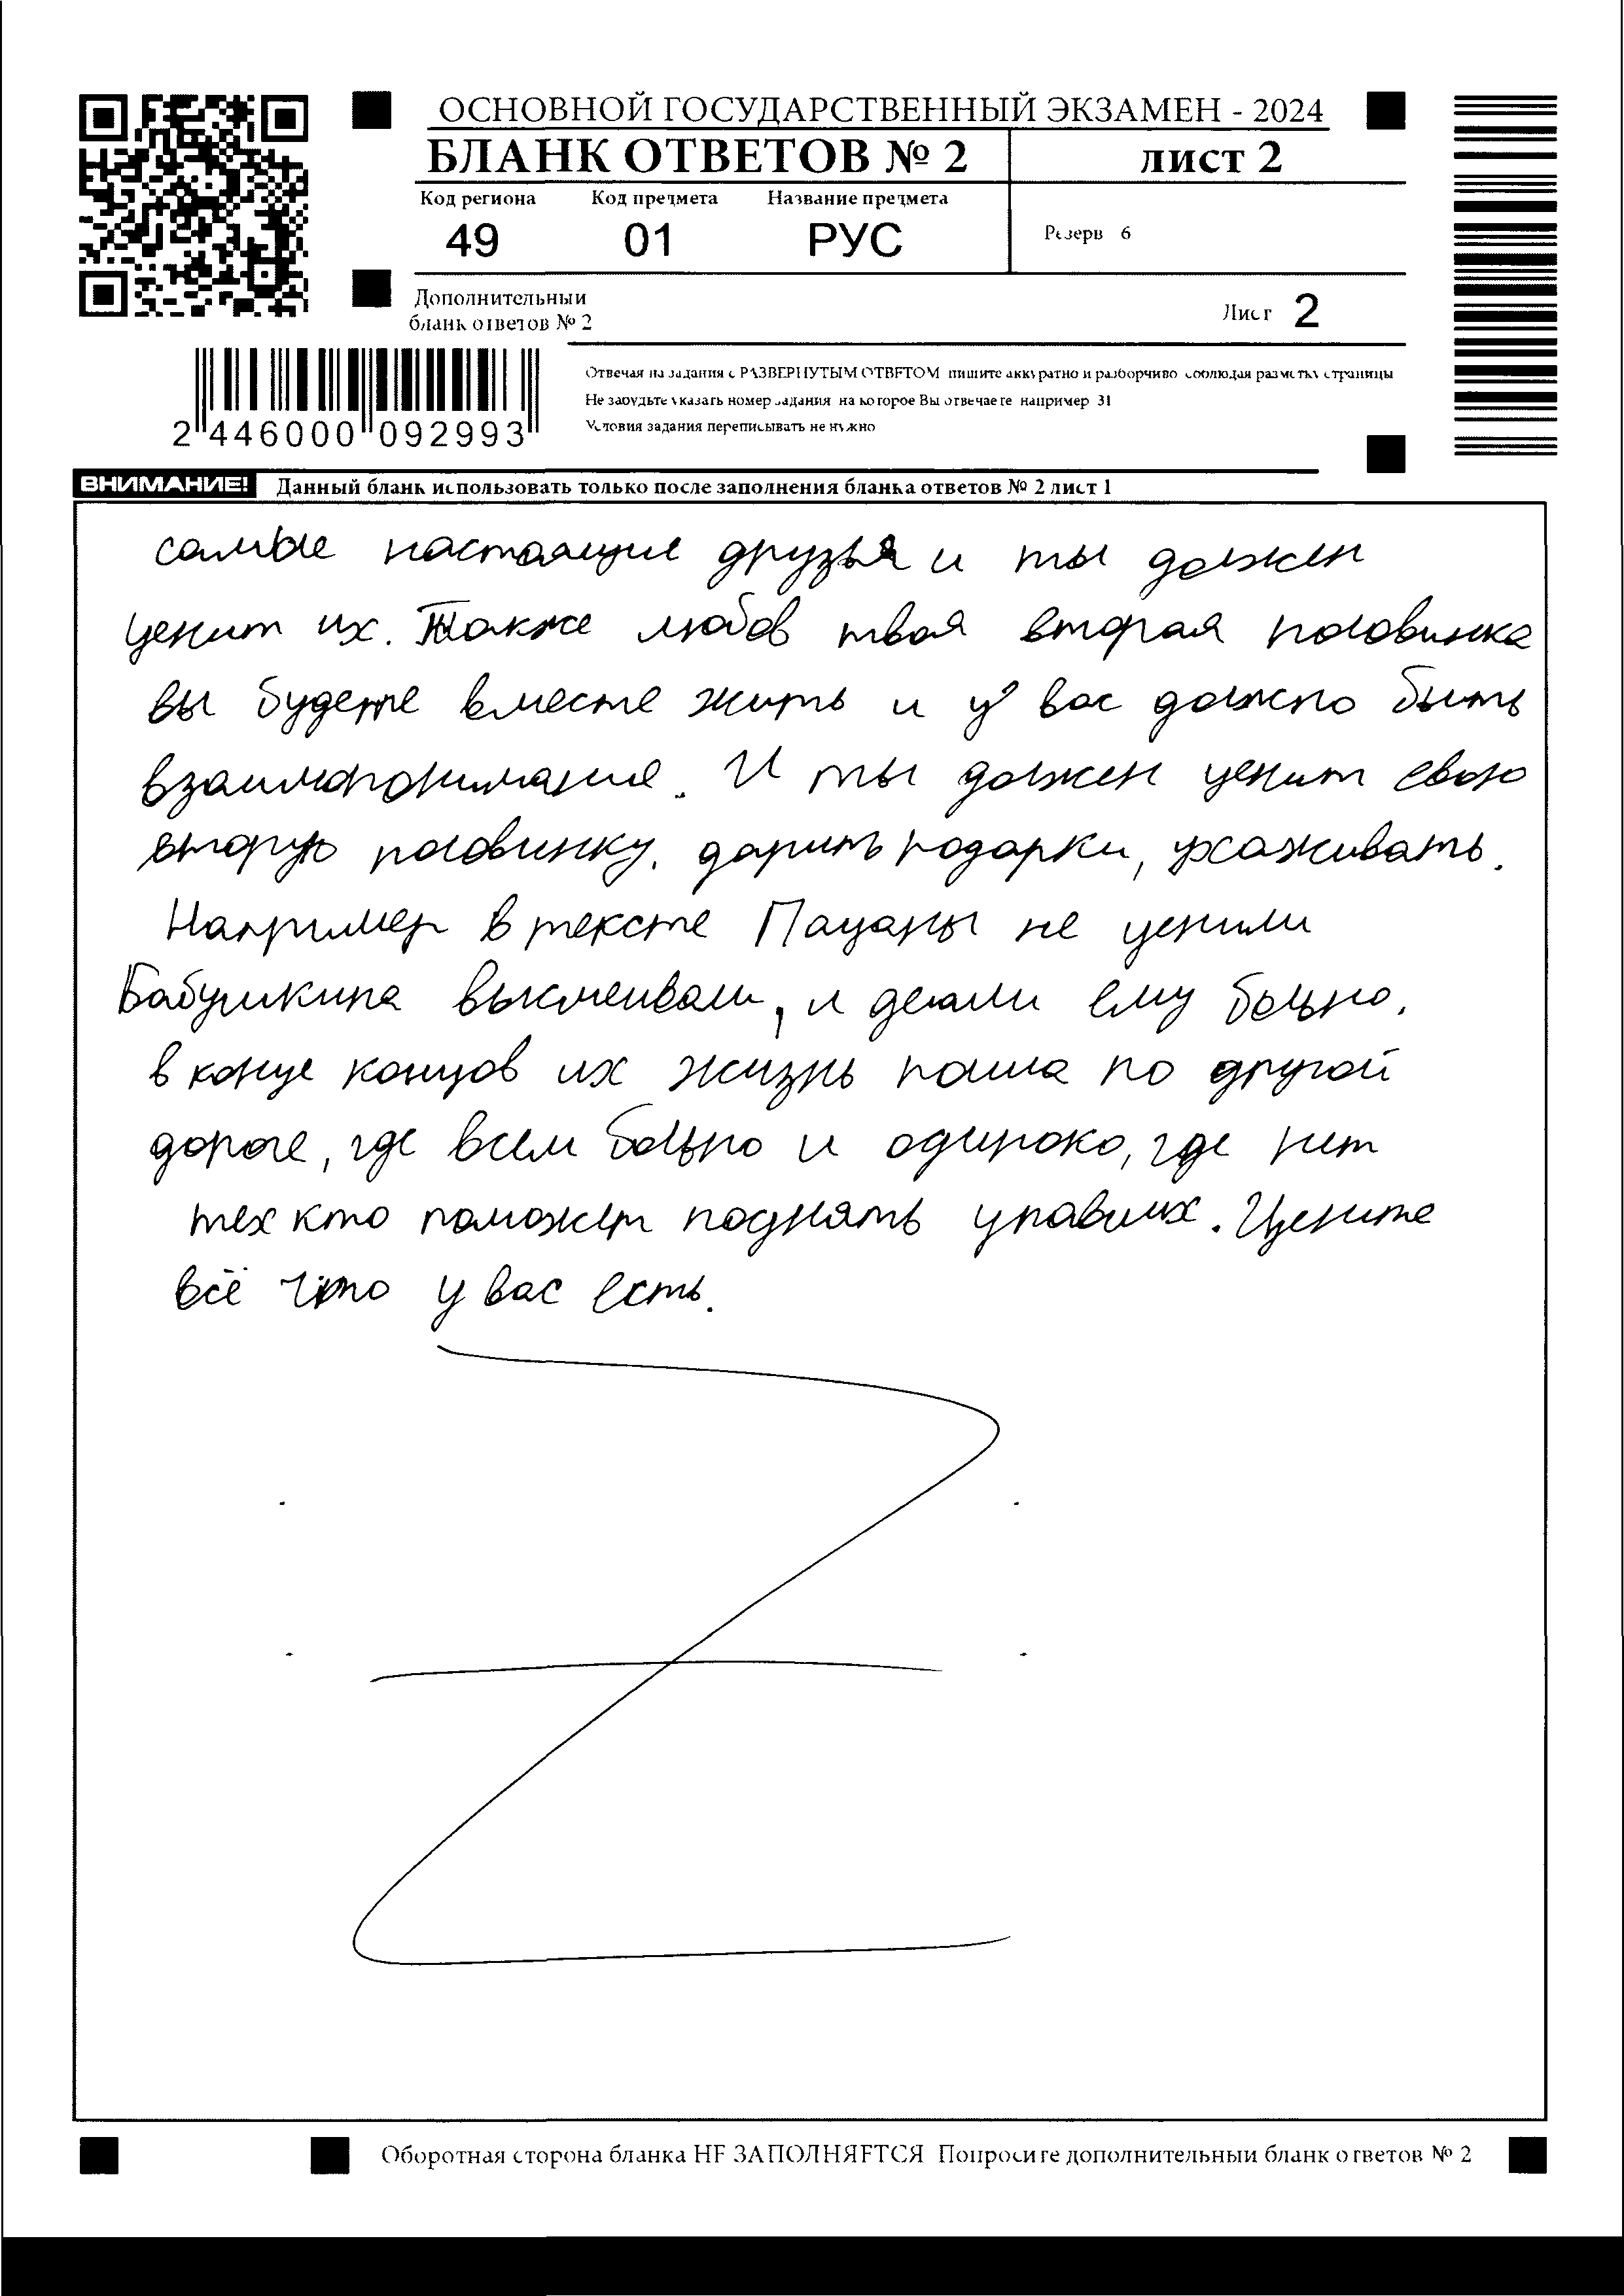 ОСНОВНОЙ ГОСУДАРСТВЕННЫЙ ЭКЗАМЕН - 2024
БЛАНК ОТВЕТОВ № 2
лист 2
Код региона Код предмета Название предмета
49 01 РУС
Резерв 6
Дополнительный
бланк ответов № 2
Лист 2
Отвечая на задания с РАЗВЕРНУТЫМ ОТВЕТОМ пишите аккуратно и разборчиво соблюдая разметку страницы
Не забудьте указать номер задания на которое Вы отвечаете например 31
Условия задания переписывать не нужно
2 446000 092993
ВНИМАНИЕ! Данный бланк использовать только после заполнения бланка ответов № 2 лист 1
самые настоящие друзья и ты должен
ценит их. Также любов твоя вторая половинка
вы будете вместе жить и у вас должно быть
взаимопонимание. И ты должен ценит свою
вторую половинку. дарить подарки, ухаживать.
Например в тексте Пацаны не ценили
Бабушкина высмеивали, и делали ему больно.
в конце концов их жизнь пошла по другой
дороге, где всем больно и одироко, где нет
тех кто поможет поднять упавших. Цените
всё что у вас есть.
Оборотная сторона бланка НЕ ЗАПОЛНЯЕТСЯ Попросите дополнительный бланк ответов № 2